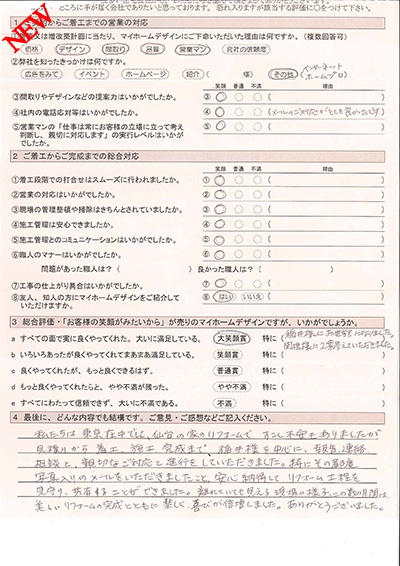 NEW
ころに手が届く会社でありたいと思っております。恐れ入りますが該当する評価に○をつけて下さい。
からご着工までの営業の対応
又は増改築計画に当たり、マイホームデザインにご下命いただいた理由は何ですか。（複数回答可）
価格 デザイン 間取り 品質 営業マン 会社の信頼感
②弊社を知ったきっかけは何ですか。
広告をみて イベント ホームページ 紹介（ 様） その他（インターネット ホームプロ）
笑顔 普通 不満 理由
③間取りやデザインなどの提案力はいかがでしたか。 ③○ ○ ○（
④社内の電話応対等はいかがでしたか。 ④○ ○ ○（メールのご対応がとても良かったです。
⑤営業マンの「仕事は常にお客様の立場に立って考え
判断し、親切に対応します」の実行レベルはいかがでしたか。 ⑤○ ○ ○（
2 ご着工からご完成までの総合対応
笑顔 普通 不満 理由
①着工段階での打合せはスムーズに行われましたか。 ①○ ○ ○（
②営業の対応はいかがでしたか。 ②○ ○ ○（
③現場の管理整頓や掃除はきちんとされていましたか。 ③○ ○ ○（
④施工管理は安心できましたか。 ④○ ○ ○（
⑤施工管理とのコミュニケーションはいかがでしたか。 ⑤○ ○ ○（
⑥職人のマナーはいかがでしたか。 ⑥○ ○ ○（
問題があった職人は？（ ）良かった職人は？（ ）
⑦工事の仕上がり具合はいかがでしたか。 ⑦○ ○ ○（
⑧友人、知人の方にマイホームデザインをご紹介して
いただけますか。 ⑧ はい いいえ（
3 総合評価・「お客様の笑顔がみたいから」が売りのマイホームデザインですが、いかがでしょうか。
a すべての面で実に良くやってくれた。大いに満足している。 大笑顔賞 特に（
b いろいろあったが良くやってくれてまあまあ満足している。 笑顔賞 特に（
c 良くやってくれたが、もっとできるはず。 普通賞 特に（
d もっと良くやってくれたらと、やや不満が残った。 やや不満 特に（
e すべてにわたって信頼できず、大いに不満である。 不満 特に（
4 最後に、どんな内容でも結構です。ご意見・ご感想などご記入ください。
私たちは東京在中でして、仙台の家のリフォームですこし不安もありましたが
見積りから着工、施工、完成まで、稲井様を中心に、報告、連絡
相談と、親切なご対応と進行をしていただきました。特にその都度
写真入りのメールをいただきましたこと、安心納得してリフォーム工程を
見守り、共有することができました。離れていても見える現場の様子、この数か月間は、
美しいリフォームの完成とともに楽しく、喜びが倍増しました。ありがとうございました。